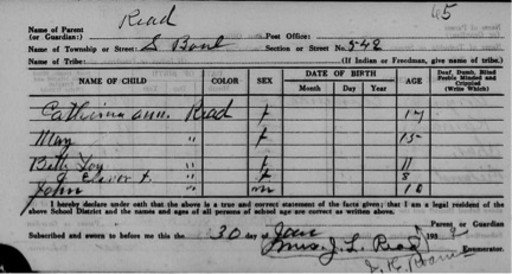 65
Read
Name of Parent
(or Guardian:) Post Office:
Name of Township or Street: S Bond Section or Street No. 542
Name of Tribe: (If Indian or Freedman, give name of tribe.)
NAME OF CHILD COLOR SEX DATE OF BIRTH AGE Deaf, Dumb, Blind
Month Day Year Feeble Minded and
Crippled
(Write Which)
Catherine ann. Read f 17
May " f 15
Betty Joy " f 11
" f 8
John " m 10
I hereby declare under oath that the above is a true and correct statement of the facts given; that I am a legal resident of the
above School District and the names and ages of all persons of school age are correct as written above.
Parent or Guardian
Subscribed and sworn to before me this the 30 day of Jan 193
Mrs. J. L. Read
Enumerator.